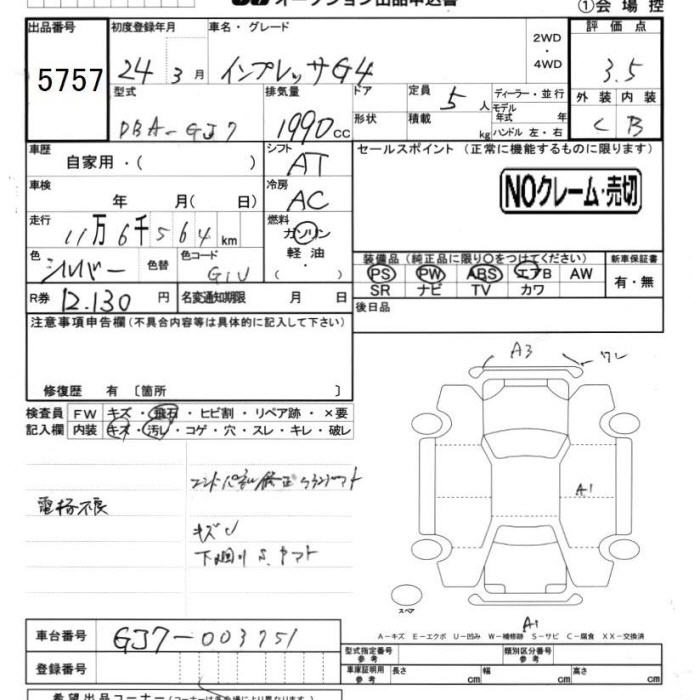 オークション出品申込書
①会場控
出品番号 初度登録年月 車名・グレード 2WD・4WD 評価点
5757 24年 3月 インプレッサG4 3.5
型式 排気量 ドア形状 定員 5人 ディーラー・並行 外装 内装
DBA-GJ7 1990cc 積載 kg モデル年式 年 ハンドル 左・右 C B
車歴 シフト セールスポイント (正常に機能するものに限ります)
自家用・( ) AT
車検 冷房 NOクレーム・売切
年 月( 日) AC
走行 燃料
11万6千564km ガソリン
色 色替 色コード 軽油 装備品 (純正品に限り○をつけてください) 新車保証書
シルバー G1U ( ・ ) PS PW ABS エアB AW 有・無
SR ナビ TV カワ
R券 12.130円 名変通知期限 月 日 後日品
注意事項申告欄(不具合内容等は具体的に記入して下さい)
修復歴 有 〔箇所 〕
検査員 FW キズ・飛石・ヒビ割・リペア跡・×要
記入欄 内装 キズ・汚レ・コゲ・穴・スレ・キレ・破レ
A3 ワレ
A1
電格不良
キズU
下廻りS
スペア
A1
A-キズ E-エクボ U-凹み W-補修跡 S-サビ C-腐食 XX-交換済
車台番号 GJ7-003751
型式指定番号 参考 類別区分番号 参考
登録番号 車庫証明用 参考 長さ cm 幅 cm 高さ cm
希望出品コーナー(コーナーは各会場により異なります)